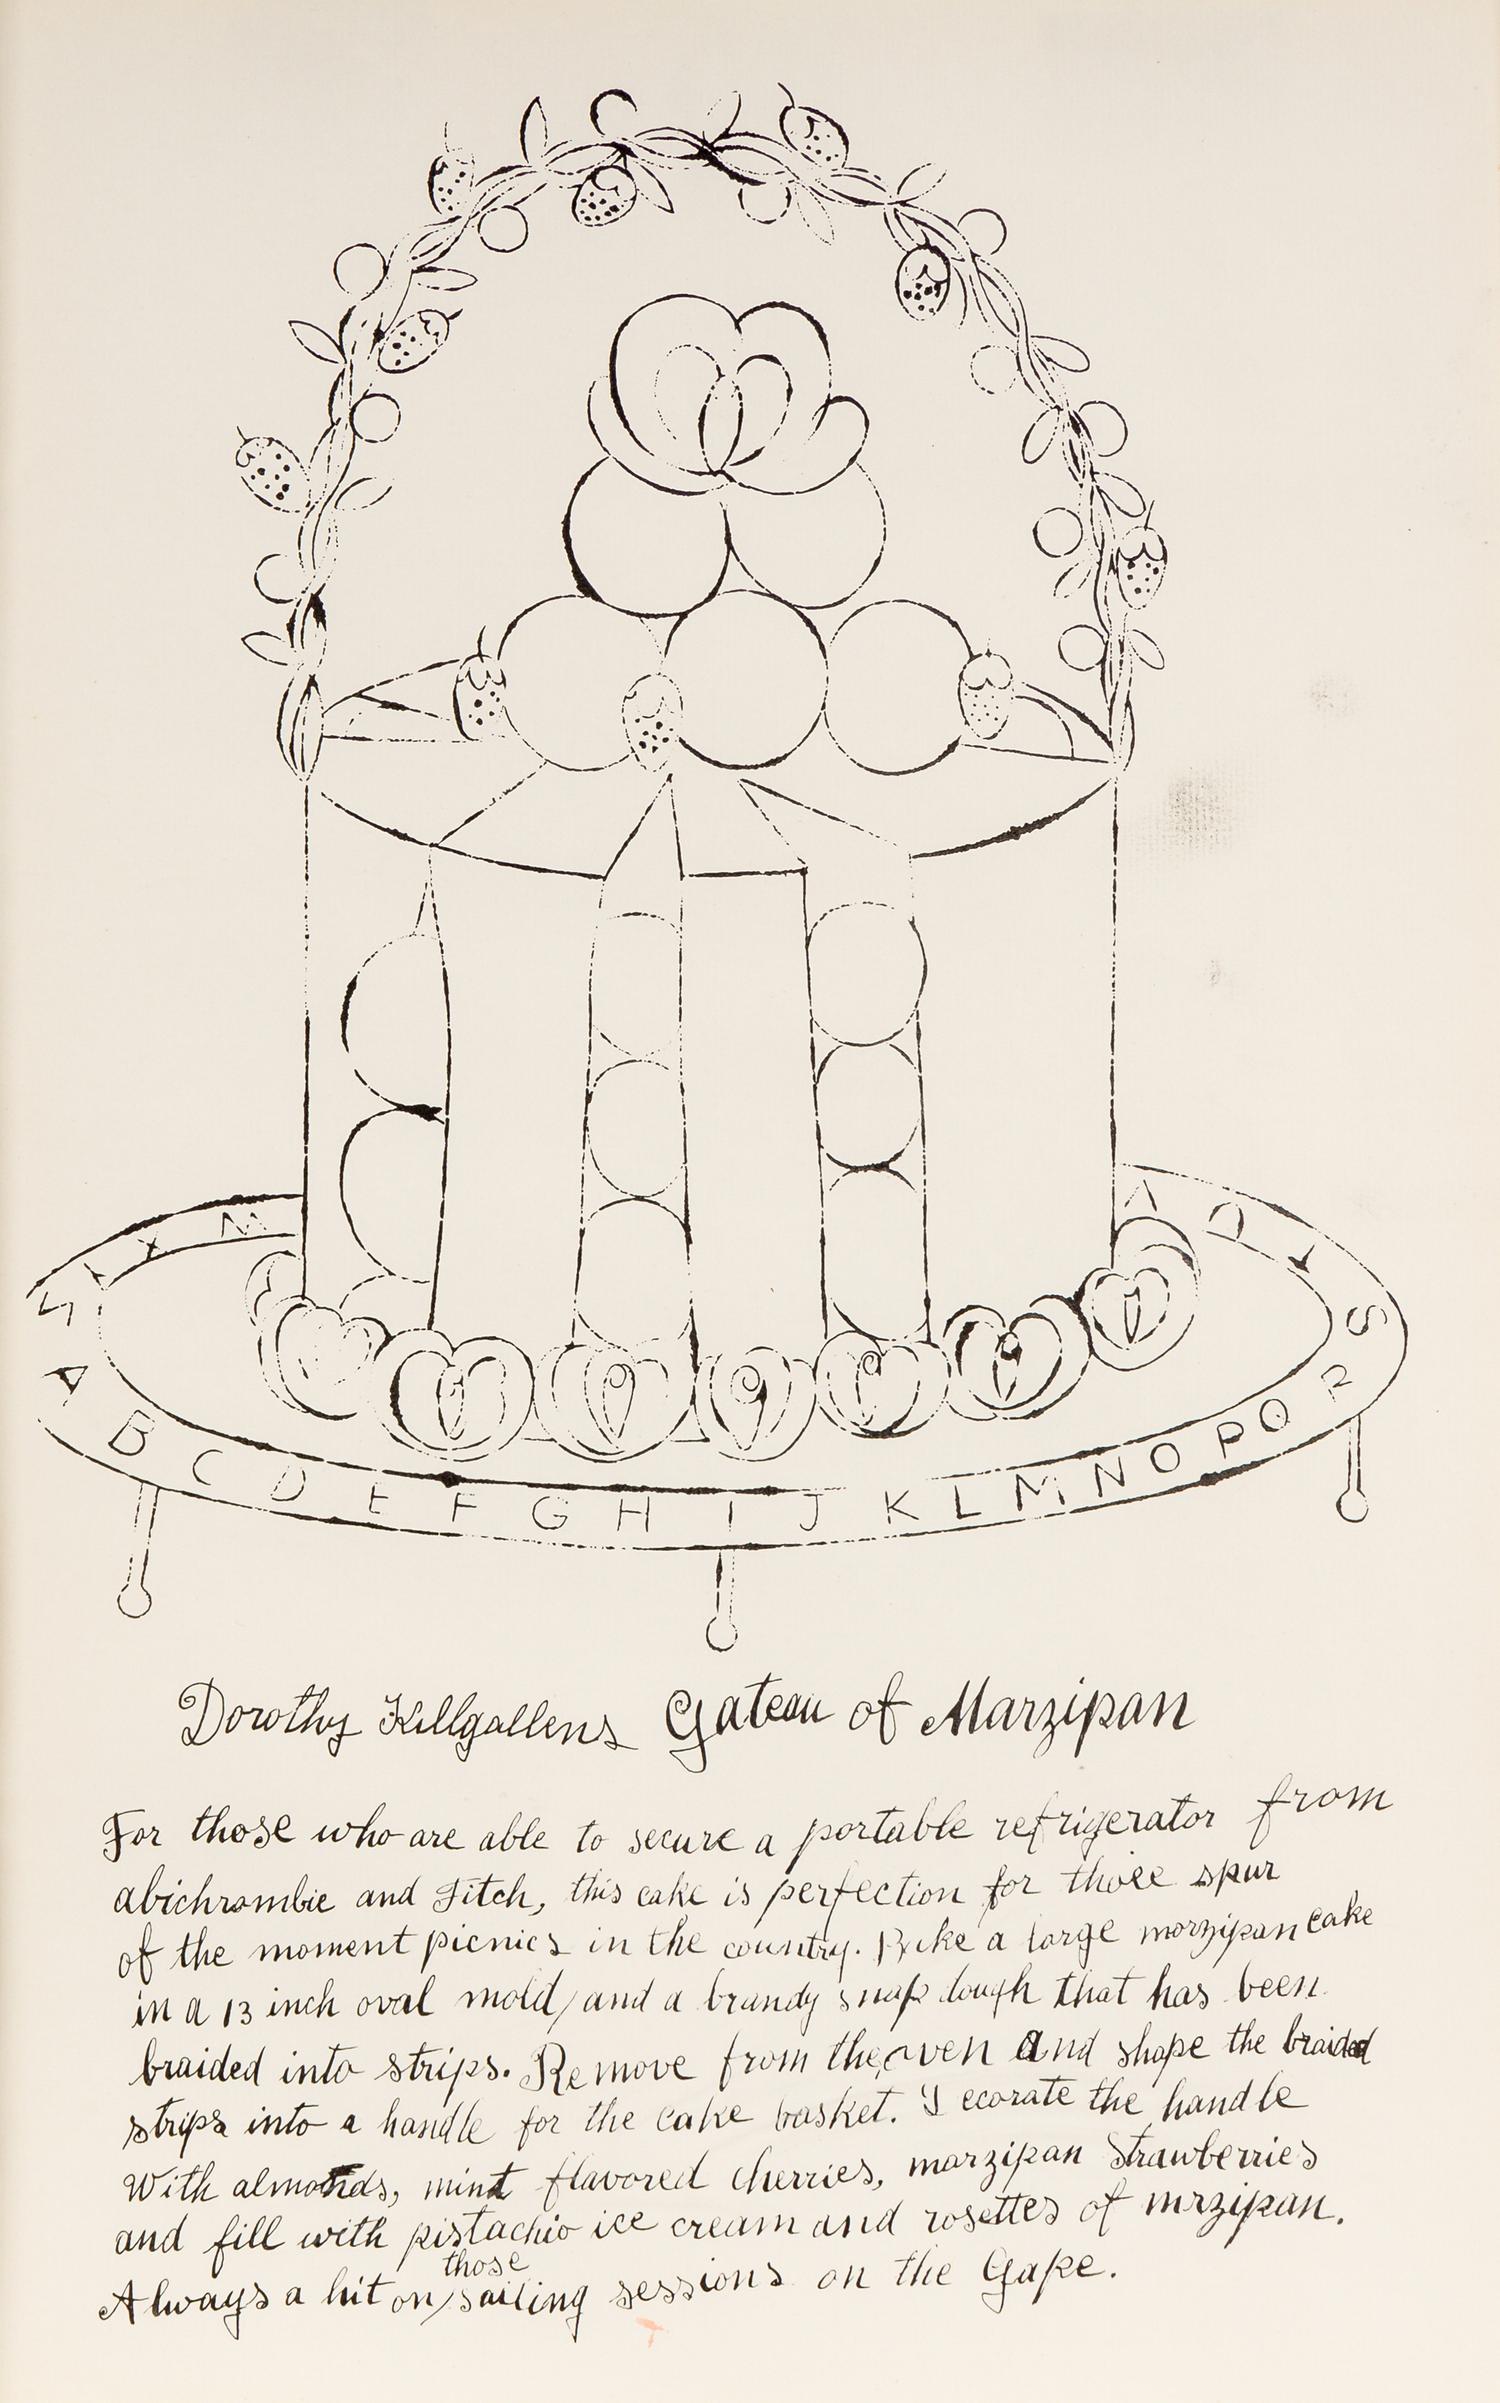 S T X M
A B C D E F G H I J K L M N O P Q R S
Dorothy Killgallens Gateau of Marzipan
For those who are able to secure a portable refrigerator from
abichrombie and Fitch, this cake is perfection for those spur
of the moment picnics in the country. Bake a large marzipan cake
in a 13 inch oval mold, and a brandy snap dough that has been
braided into strips. Remove from the oven and shape the braided
strips into a handle for the cake basket. Decorate the handle
With almonds, mint flavored cherries, marzipan strawberries
and fill with pistachio ice cream and rosettes of mrzipan.
Always a hit on those sailing sessions on the Gape.